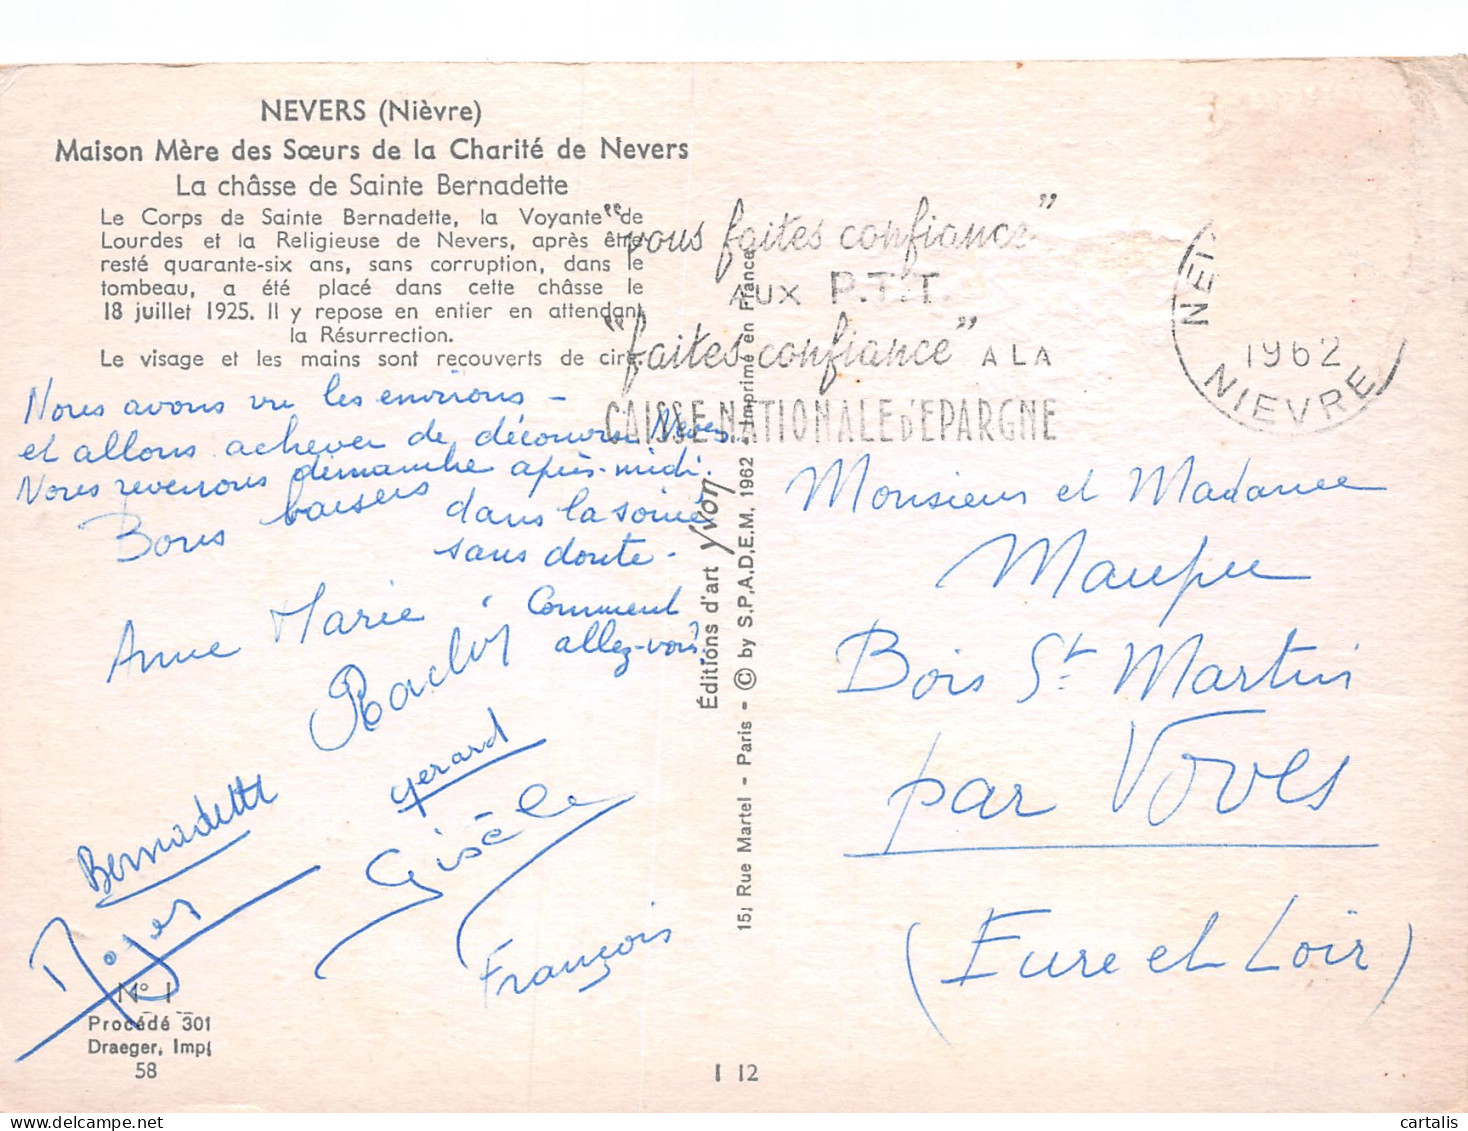 NEVERS (Nièvre)
Maison Mère des Sœurs de la Charité de Nevers
La châsse de Sainte Bernadette
Le Corps de Sainte Bernadette, la Voyante de
Lourdes et la Religieuse de Nevers, après être
resté quarante-six ans, sans corruption, dans le
tombeau, a été placé dans cette châsse le
18 juillet 1925. Il y repose en entier en attendant
la Résurrection.
Le visage et les mains sont recouverts de cire.
Nous avons vu les environs -
et allons achever de découvrir Nevers.
Nous reviendrons dimanche après-midi.
Bons baisers dans la soirée
sans doute -
Anne Marie
Comment
allez-vous
Gérard
Bernadette
Gisèle
Roger
François
N° 1
Procédé 301
Draeger, Imp.
58
Éditions d'art yvon
15, Rue Martel - Paris - © by S.P.A.D.E.M. 1962 - Imprimé en France
I 12
"vous faites confiance"
AUX P.T.T.
"faites confiance" A LA
CAISSE NATIONALE d'EPARGNE
1962
NIEVRE
Monsieur et Madame
Maupu
Bois St Martin
par Voves
(Eure et Loir)
cartalis